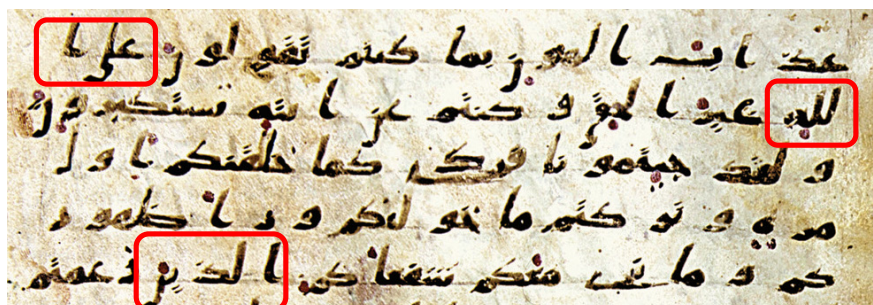 عذاب الهون بما كنتم تقولون على ا
لله غير الحق وكنتم عن ايته تستكبرون
ولقد جيتمونا فردى كما خلقنكم اول
مرة وتركتم ما خولنكم ورا ظهور
كم وما نرى معكم شفعاكم الذين زعمتم